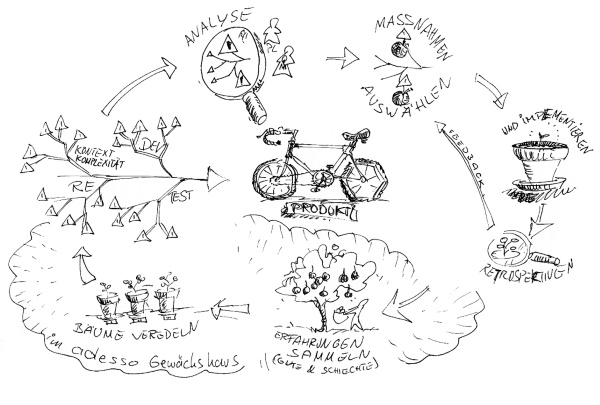 ANALYSE
PL
MASSNAHMEN
AUSWÄHLEN
UND IMPLEMENTIEREN
FEEDBACK
RETROSPEKTIVEN
KONTEXT
KOMPLEXITÄT
DEV
RE
TEST
PRODUKT
ERFAHRUNGEN
SAMMELN
(GUTE & SCHLECHTE)
BÄUME VEREDELN
im adesso Gewächshaus